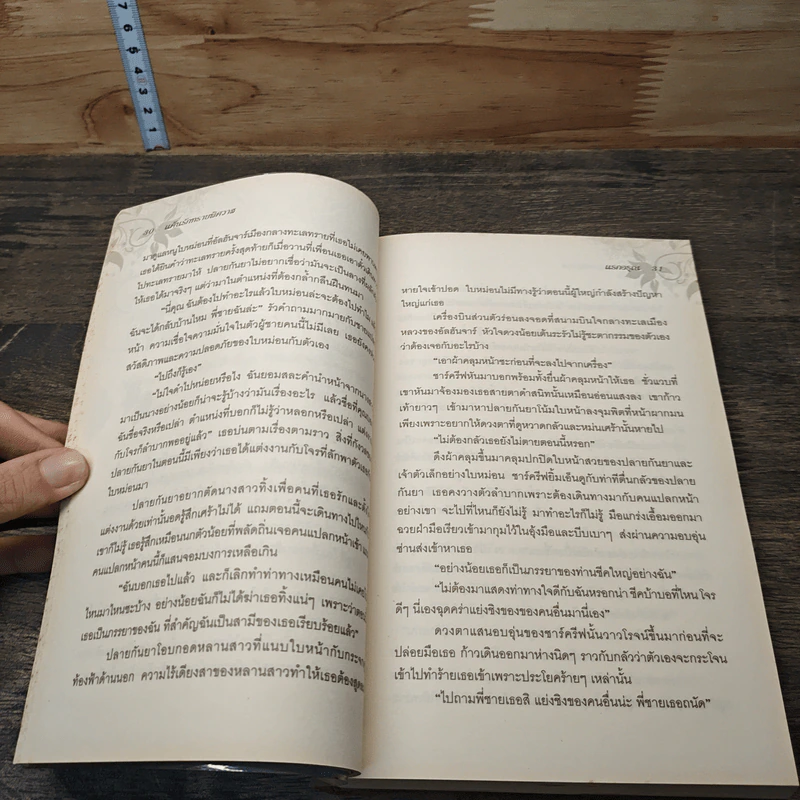 7
6
5
4
3
2
1
30
มาดูแลหนูใบหม่อนที่อัลฮันจาร์เมืองกลางทะเลทรายที่เธอไม่เคย
เธอได้ยินคำว่าทะเลทรายครั้งสุดท้ายก็เมื่อวานที่เพื่อนเธอเอา
ไปทะเลทรายมาให้ ปลายกันยาไม่อยากเชื่อว่ามันจะเป็นลาง
ให้เธอได้มาจริงๆ แต่ว่ามาในตำแหน่งที่ต้องกล้ำกลืนฝืนทนมา
“นี่คุณ ฉันต้องไปทำอะไรแล้วใบหม่อนล่ะจะต้องไปทำ
ฉันจะได้กลับบ้านไหม พี่ชายฉันล่ะ” รัวคำถามมากมายกับ
หน้า ความเชื่อใจความมั่นใจในตัวผู้ชายคนนี้ไม่มีเลย เธอยัง
สวัสดิภาพและความปลอดภัยของใบหม่อนกับตัวเอง
“ไปถึงก็รู้เอง”
“ไม่ใจดำไปหน่อยหรือไง ฉันยอมสละคำนำหน้าจากนาง
มาเป็นนางอย่างน้อยก็น่าจะรู้บ้างว่ามันเรื่องอะไร แล้วชื่อที่คุณ
ฉันชื่อจริงหรือเปล่า ตำแหน่งที่บอกก็ไม่รู้ว่าหลอกหรือเปล่า
กับโจรก็ลำบากพออยู่แล้ว” เธอบ่นตามเรื่องตามราว สิ่งที่
ปลายกันยาในตอนนี้มีเพียงว่าเธอได้แต่งงานกับโจรที่ลักพาตัว
ใบหม่อนมา
ปลายกันยาอยากตัดนางสาวทิ้งเพื่อคนที่เธอรักและ
แต่งงานด้วยเท่านั้นอดรู้สึกเศร้าไม่ได้ แถมตอนนี้จะเดินทางไปไหน
เขาก็ไม่รู้ เธอรู้สึกเหมือนนกตัวน้อยที่พลัดถิ่นเจอคนแปลกหน้าเข้า
คนแปลกหน้าคนนี้ก็แสนจอมบงการเหลือเกิน
“ฉันบอกเธอไปแล้ว และก็เลิกทำท่าทางเหมือนคนไม่
ไหนมาไหนซะบ้าง อย่างน้อยฉันก็ไม่ได้ฆ่าเธอทิ้งแน่ๆ เพราะว่า
เธอเป็นภรรยาของฉัน ที่สำคัญฉันเป็นสามีของเธอเรียบร้อยแล้ว”
ปลายกันยาโอบกอดหลานสาวที่แนบใบหน้ากับกระจก
ท้องฟ้าด้านนอก ความไร้เดียงสาของหลานสาวทำให้เธอต้อง
31
หายใจเข้าปอด ใบหม่อนไม่มีทางรู้ว่าตอนนี้ผู้ใหญ่กำลังสร้างปัญหา
ใหญ่แก่เธอ
เครื่องบินส่วนตัวร่อนลงจอดที่สนามบินใจกลางทะเลเมือง
หลวงของอัลฮันจาร์ หัวใจดวงน้อยเต้นระรัวไม่รู้ชะตากรรมของตัวเอง
ว่าต้องเจอกับอะไรบ้าง
“เอาผ้าคลุมหน้าซะก่อนที่จะลงไปจากเครื่อง”
ชาร์ครีฟหันมาบอกพร้อมทั้งยื่นผ้าคลุมหน้าให้เธอ ชั่วแวบที่
เขาหันมาจ้องมองเธอสายตาดำสนิทนั้นเหมือนอ่อนแสงลง เขาก้าว
เท้ายาวๆ เข้ามาหาปลายกันยาโน้มใบหน้าลงจุมพิตที่หน้าผากมน
เพียงเพราะอยากให้ดวงตาที่ดูหวาดกลัวและหม่นเศร้านั้นหายไป
“ไม่ต้องกลัวเธอยังไม่ตายตอนนี้หรอก”
ดึงผ้าคลุมขึ้นมาคลุมปกปิดใบหน้าสวยของปลายกันยาและ
เจ้าตัวเล็กอย่างใบหม่อน ชาร์ครีฟยิ้มเอ็นดูกับท่าทีตื่นกลัวของปลาย
กันยา เธอคงวางตัวลำบากเพราะต้องเดินทางมากับคนแปลกหน้า
อย่างเขา จะไปที่ไหนก็ยังไม่รู้ มาทำอะไรก็ไม่รู้ มือแกร่งเอื้อมออกมา
ฉวยฝ่ามือเรียวเข้ามากุมไว้ในอุ้งมือและบีบเบาๆ ส่งผ่านความอบอุ่น
ซ่านส่งเข้าหาเธอ
“อย่างน้อยเธอก็เป็นภรรยาของท่านชีคใหญ่อย่างฉัน”
“ไม่ต้องมาแสดงท่าทางใจดีกับฉันหรอกน่า ชีคบ้าบอที่ไหน โจร
ดีๆ นี่เองฉุดคร่าแย่งชิงของของคนอื่นมานี่เอง”
ดวงตาแสนอบอุ่นของชาร์ครีฟนั้นวาวโรจน์ขึ้นมาก่อนที่จะ
ปล่อยมือเธอ ก้าวเดินออกมาห่างนิดๆ ราวกับกลัวว่าตัวเองจะกระโจน
เข้าไปทำร้ายเธอเข้าเพราะประโยคร้ายๆ เหล่านั้น
“ไปถามพี่ชายเธอสิ แย่งชิงของคนอื่นน่ะ พี่ชายเธอถนัด”